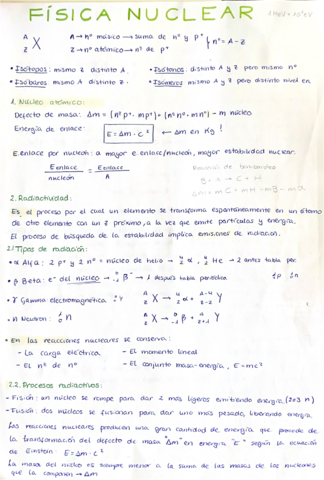 FÍSICA NUCLEAR
A Z X A → nº másico → suma de nº y p+
Z → nº atómico → nº de p+ } nº = A - Z
• Isótopos: mismo Z distinto A. • Isótonos: distinto A y Z pero mismo nº
• Isóbaros: mismo A distinto Z. • Isómeros: mismo A y Z pero distinto nivel en.
1. Núcleo atómico:
Defecto de masa: Δm = (nº p+ · mp+) + (nº nº · mnº) - m núcleo
Energía de enlace: E = Δm · c² ← Δm en Kg!
E.enlace por nucleón: a mayor e.enlace/nucleón, mayor estabilidad nuclear.
E enlace / nucleón = E enlace / A
2. Radiactividad:
Es el proceso por el cual un elemento se transforma espontáneamente en un átomo
de otro elemento con un Z próximo, a la vez que emite partículas y energía.
El proceso de búsqueda de la estabilidad implica emisiones de radiación.
2.1 Tipos de radiación:
• α Alfa: 2 p+ y 2 nº = núcleo de helio → 4 2 α, 4 2 He → 2 antes tabla per.
• β Beta: e- del núcleo → 0 -1 β- → 1 después tabla periódica
• γ Gamma electromagnética: γ A Z X → 4 2 α + A-4 Z-2 Y
• n Neutrón: 1 0 n A Z X → 0 -1 β + A Z+1 Y
• En las reacciones nucleares se conserva:
- La carga eléctrica - El momento lineal
- El nº de nº - El conjunto masa-energía, E=mc²
2.2. Procesos radiactivos:
- Fisión: un núcleo se rompe para dar 2 más ligeros emitiendo energía (2ó3 n)
- Fusión: dos núcleos se fusionan para dar uno más pesado, liberando energía.
Las reacciones nucleares producen una gran cantidad de energía que procede de
la transformación del defecto de masa "Δm" en energía "E" según la ecuación
de Einstein E=Δm·c²
La masa del núcleo es siempre menor a la suma de las masas de los nucleones
que la componen → Δm